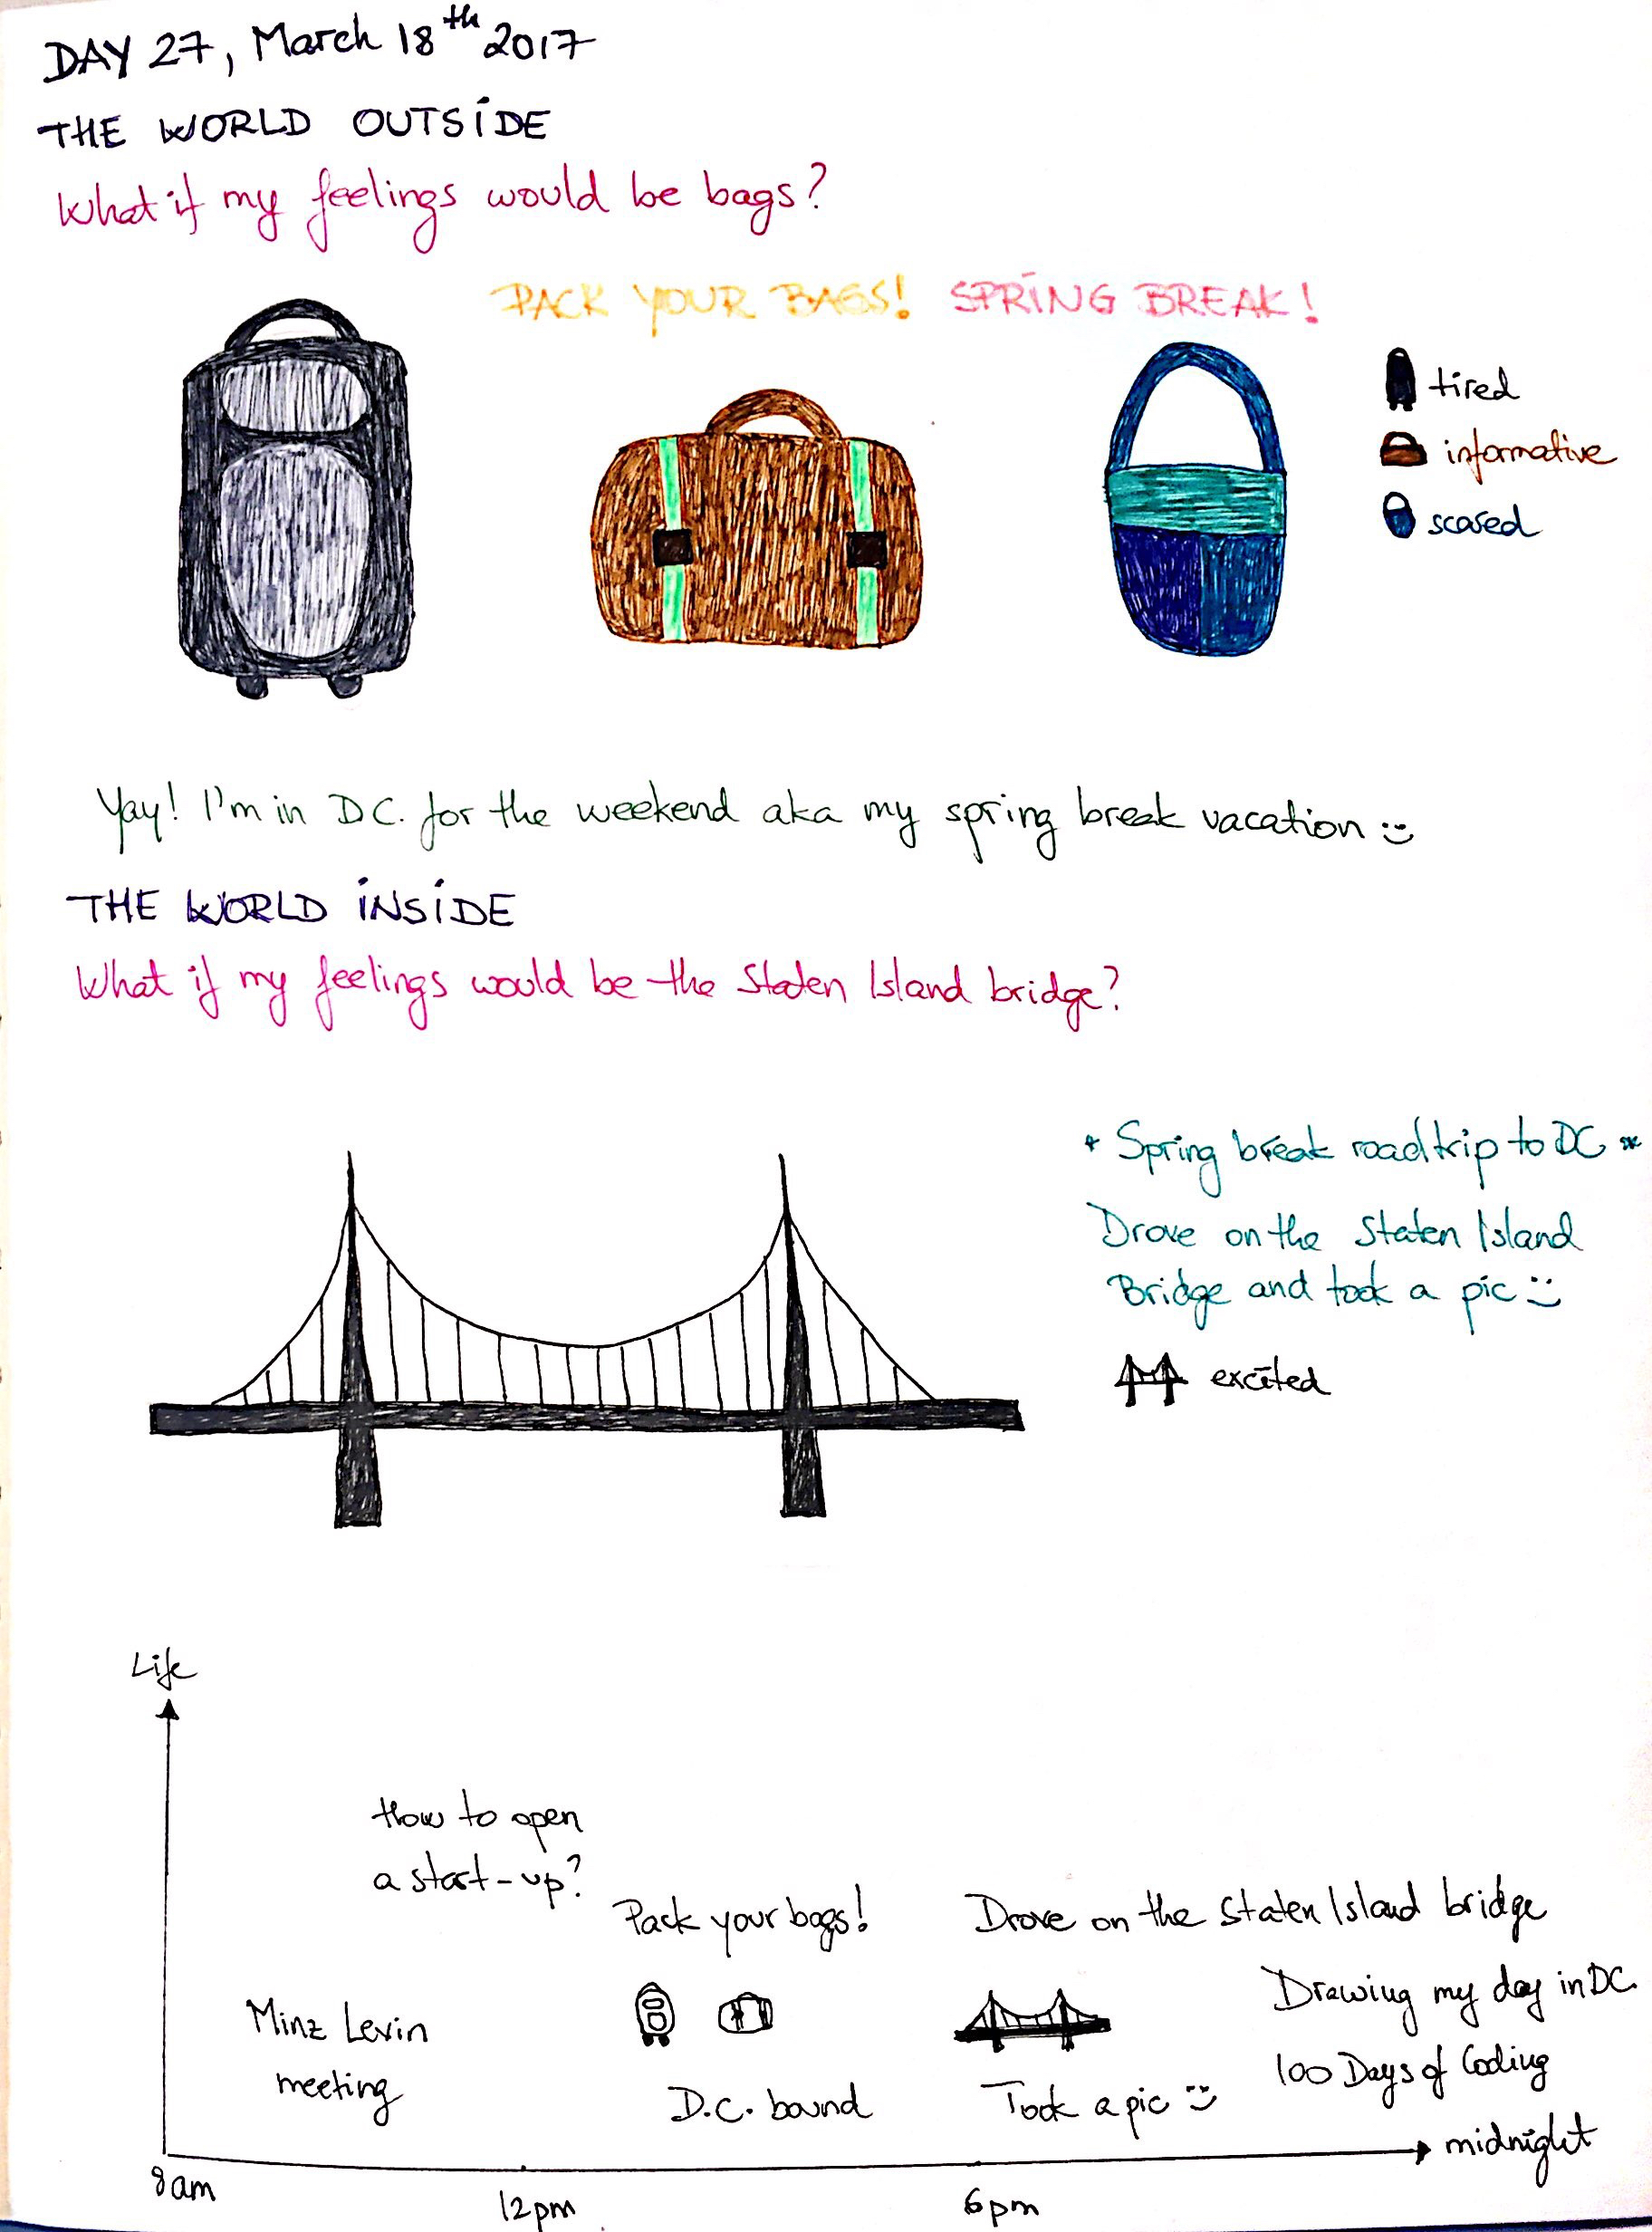 DAY 27, March 18th 2017
THE WORLD OUTSIDE
What if my feelings would be bags?
PACK YOUR BAGS! SPRING BREAK!
tired
informative
scared
Yay! I'm in D.C. for the weekend aka my spring break vacation :)
THE WORLD INSIDE
What if my feelings would be the Staten Island bridge?
* Spring break roadtrip to DC *
Drove on the Staten Island
Bridge and took a pic :)
excited
Life
How to open
a start-up?
Pack your bags!
Drove on the Staten Island bridge
Minz Levin
meeting
D.C. bound
Took a pic :)
Drawing my day in DC.
100 Days of Coding
midnight
8am
12pm
6pm